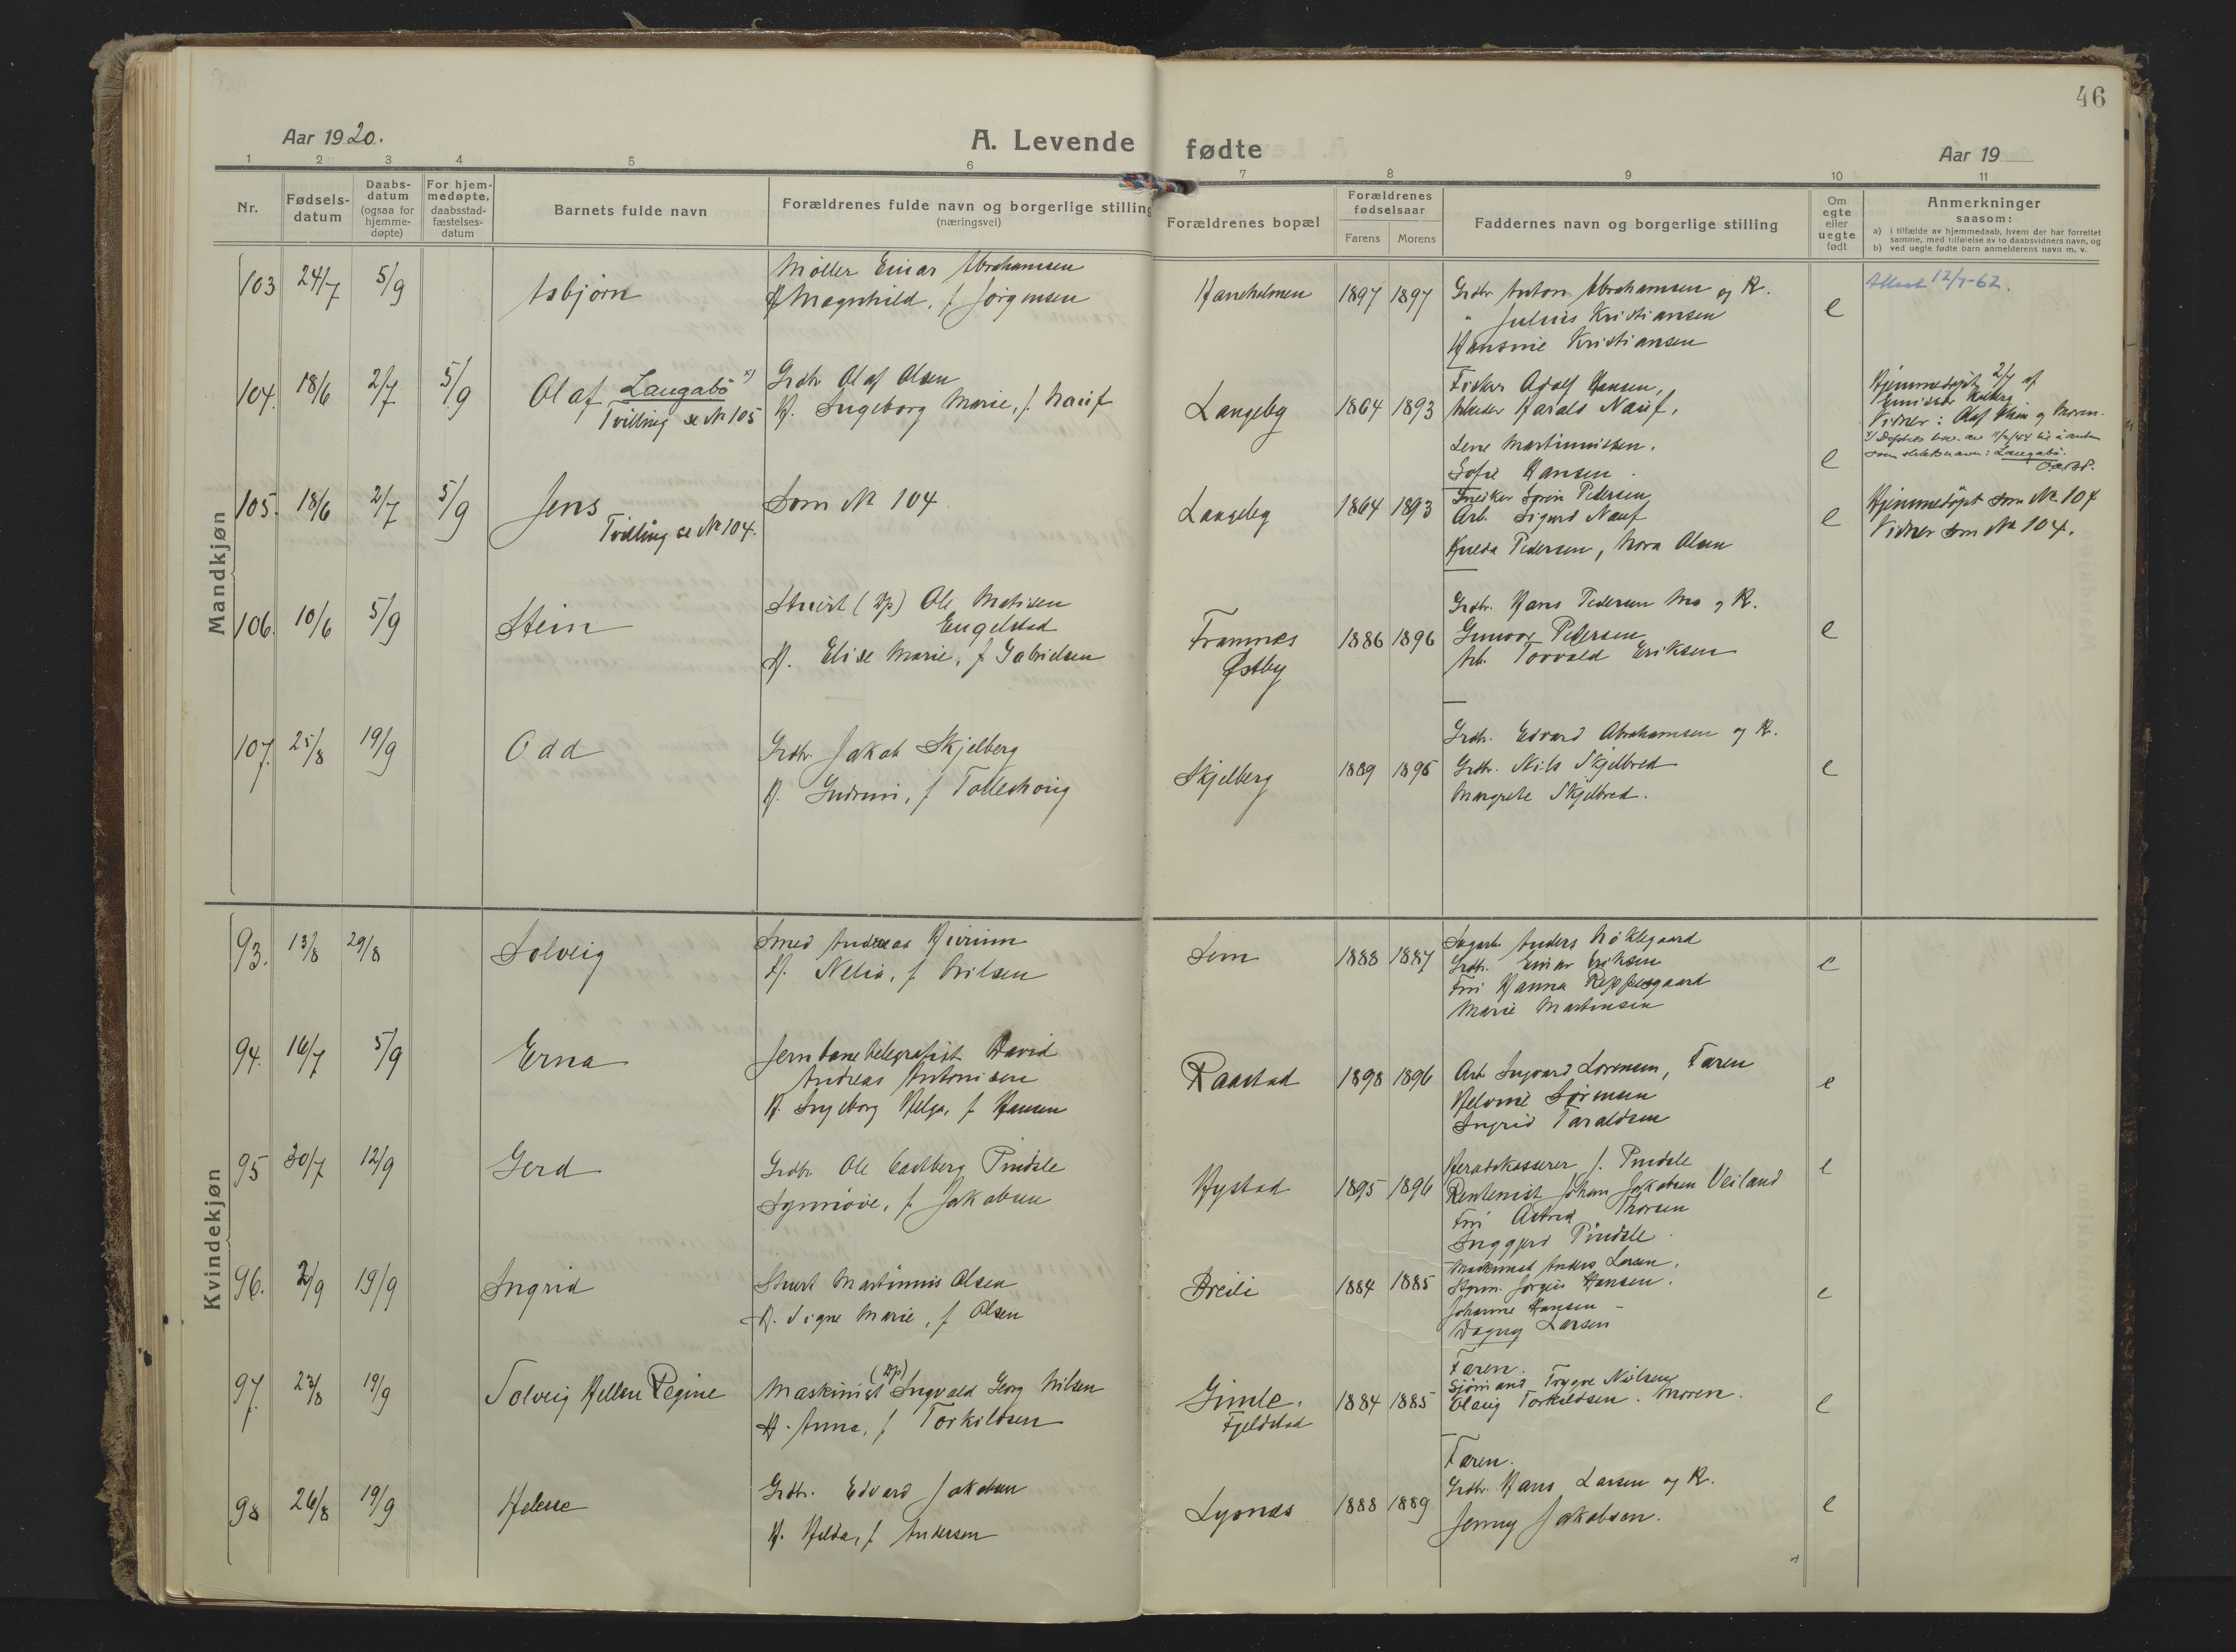 46
Aar 1920.
A. Levende fødte
Aar 19
1 2 3 4 5 6 7 8 9 10 11
Nr.
Fødsels-datum
Daabs-datum (ogsaa for hjemme-døpte)
For hjem-medøpte, daabsstad-fæstelses-datum
Barnets fulde navn
Forældrenes fulde navn og borgerlige stilling
(næringsvei)
Forældrenes bopæl
Forældrenes fødselsaar
Farens Morens
Faddernes navn og borgerlige stilling
Om egte eller uegte født
Anmerkninger
saasom:
a) i tilfælde av hjemmedaab, hvem der har forrettet samme, med tilføielse av to daabsvidners navn, og
b) ved uegte fødte barn anmelderens navn m. v.
Mandkjøn
103 24/7 5/9 Asbjørn
Møller Einar Abrahamsen
H. Magnhild, f. Jørgensen
Haneholmen 1897 1897
Grdbr. Anton Abrahamsen og K.
" Julius Kristiansen
Hansine Kristiansen
e
Attest 12/1-62.
104. 18/6 2/7 5/9 Olaf Langabø x)
Tvilling se № 105
Grdbr. Olaf Olsen
H. Ingeborg Marie, f. Nauf
Langeby 1864 1893
Fisker Adolf Hansen,
Arbeider Harald Nauf,
Lene Martinnissen.
Sofie Hansen.
e
Hjemmedøpt 2/7 af
Vidner: Olaf Olsen og Moren.
som slektsnavn: Langabø.
105. 18/6 2/7 5/9 Jens
Tvilling se № 104.
Som № 104
Langeby 1864 1893
Snekker Søren Pedersen
Arb. Sigurd Nauf
Hulda Pedersen, Nora Olsen
e
Hjemmedøpt som № 104
Vidner som № 104.
106. 10/6 5/9 Stein
Stuert (Hp) Ole Matisen
Engelstad
H. Elise Marie, f. Gabrielsen
Framnes
Østby
1886 1896
Grdbr. Hans Pedersen Mo og K.
Gunvor Pedersen
Arb. Torvald Eriksen
e
107. 25/8 19/9 Odd
Grdbr. Jakob Skjelberg
H. Gudrun, f. Tolleshaug
Skjelberg 1889 1895
Grdbr. Edvard Abrahamsen og K.
Grdbr. Nils Skjelbred
Margrete Skjelbred.
e
Kvindekjøn
93. 13/8 29/8 Solveig
Smed Andreas
H. Nelia, f. Nilsen
Sem 1888 1887
Anders Møklegaard
Grdbr. Einar Eriksen
Frk Hanna Reppesgaard
Marie Martinsen
e
94. 16/7 5/9 Erna
Jernbanetelegrafist David
Andreas Antonisen
H. Ingeborg Helga, f. Hansen
Raastad 1898 1896
Arb. Ingvard Lorensen, Faren
Helene Sørensen
Ingrid Taraldsen
e
95 30/7 12/9 Gerd
Grdbr. Ole Castberg Pindsle
Synnøve, f. Jakobsen
Hystad 1895 1896
Heradskasserer J. Pindsle
Rentenist Johan Jakobsen Veiland
Frk Astrid Thorsen
Inggjerd Pindsle.
e
96. 2/9 19/9 Ingrid
Stuert Martinius Olsen
H. Signe Marie, f. Olsen
Breili 1884 1885
Maskinist Anders Larsen.
Styrm. Jørgen Hansen.
Johanne Hansen
Dagny Larsen
e
97. 23/8 19/9 Solveig Hellen Regine
Maskinist (Hp) Ingvald Georg Nilsen
H. Anna, f. Torkildsen
Gimle.
Fjeldstad
1884 1885
Faren.
Sjømand Trygve Nielsen
Olaug Torkildsen. Moren.
e
98 26/8 19/9 Helene
Grdbr. Edvard Jakobsen
H. Hilda, f. Andersen
Lysnæs 1888 1889
Faren.
Grdbr. Hans Larsen og K.
Jenny Jakobsen.
e